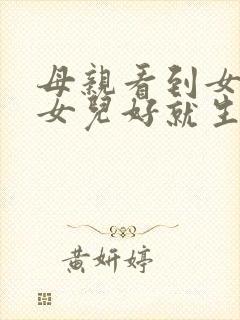 母親看到女
女兒好就生
黃妍婷